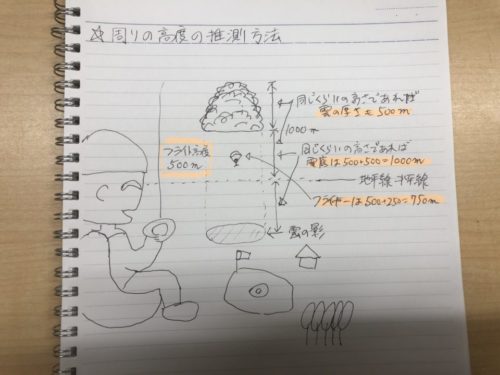 ☆周りの高度の推測方法
同じくらいの高さであれば
雲の厚さも500m
1000m
フライト高度
500m
同じくらいの高さであれば
雲底は500+500=1000m
地平線 水平線
フライヤーは500+250=750m
雲の影